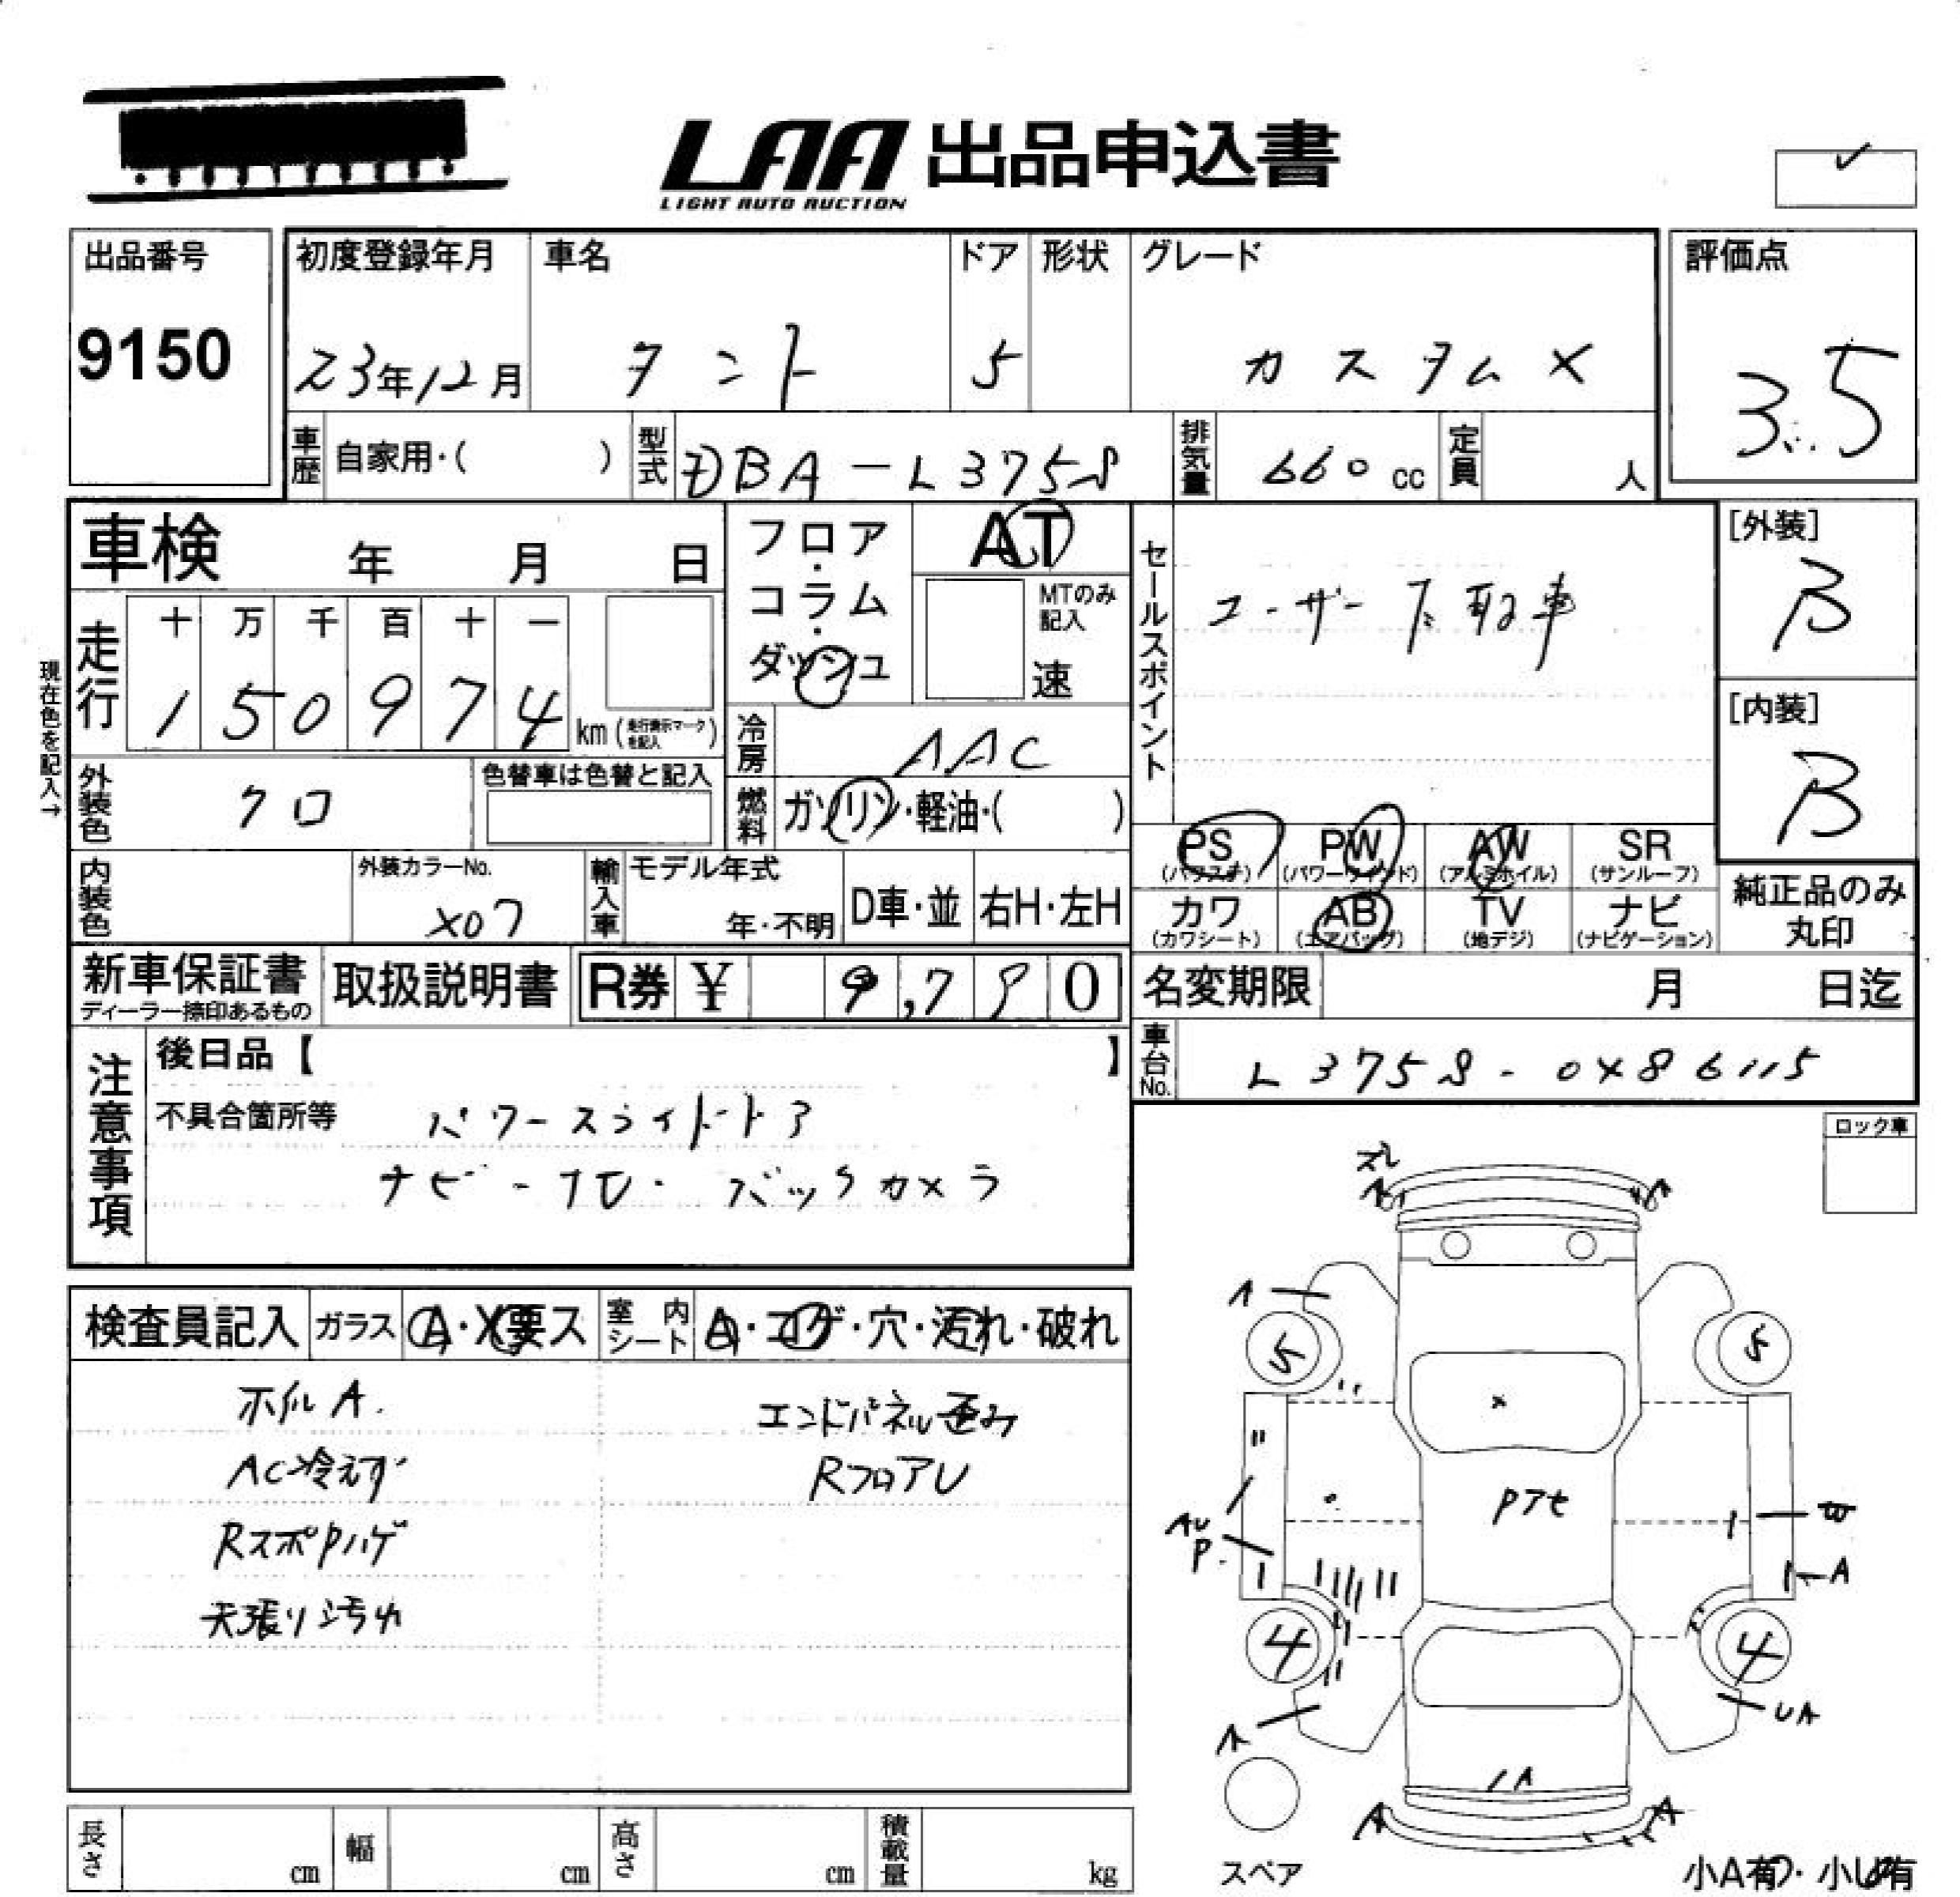 LAA 出品申込書
LIGHT AUTO AUCTION
出品番号
9150
初度登録年月
23年12月
車名
タント
ドア
5
形状
グレード
カスタムX
評価点
3.5
車歴
自家用・( )
型式
DBA-L375S
排気量
660 cc
定員
人
車検 年 月 日
フロア・コラム・ダッシュ
AT
MTのみ記入
速
セールスポイント
ユーザー下取車
[外装]
B
[内装]
B
現在色を記入→
走行
十 万 千 百 十 一
1 5 0 9 7 4 km (走行表示マークを記入)
冷房
AAC
外装色
クロ
色替車は色替と記入
燃料
ガソリン・軽油・( )
PS
(パワステ)
PW
(パワーウィンド)
AW
(アルミホイル)
SR
(サンルーフ)
カワ
(カワシート)
AB
(エアバッグ)
TV
(地デジ)
ナビ
(ナビゲーション)
純正品のみ丸印
内装色
外装カラーNo.
X07
輸入車
モデル年式
年・不明
D車・並
右H・左H
新車保証書
ディーラー捺印あるもの
取扱説明書
R券 ¥ 9,790
名変期限 月 日迄
車台No.
L375S-0486115
注意事項
後日品【 】
不具合箇所等
パワースライドドア
ナビ・TV・バックカメラ
ロック車
検査員記入
ガラス
A・X要ス
室内シート
A・コゲ・穴・汚れ・破れ
ホイルA.
AC冷えず
RスポPハゲ
天張り汚れ
エンドパネル歪み
RフロアU
ズレ
A
A
A
5
5
x
Pアセ
AU
P.
W
A
4
4
UA
A
A
A
A
スペア
小A有・小U有
長さ cm
幅 cm
高さ cm
積載量 kg